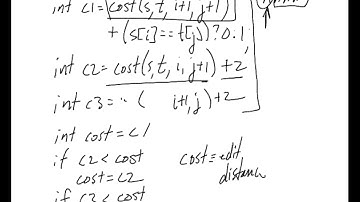 int c1=cost(s,t,i+1,j+1)
+(s[i]==t[j])?0.1
int c2=cost(s,t,i,j+1)+2
int c3=" ( i+1,j)+2
int cost=c1
if c2<cost
cost=c2
if c3<cost
cost=edit
distance